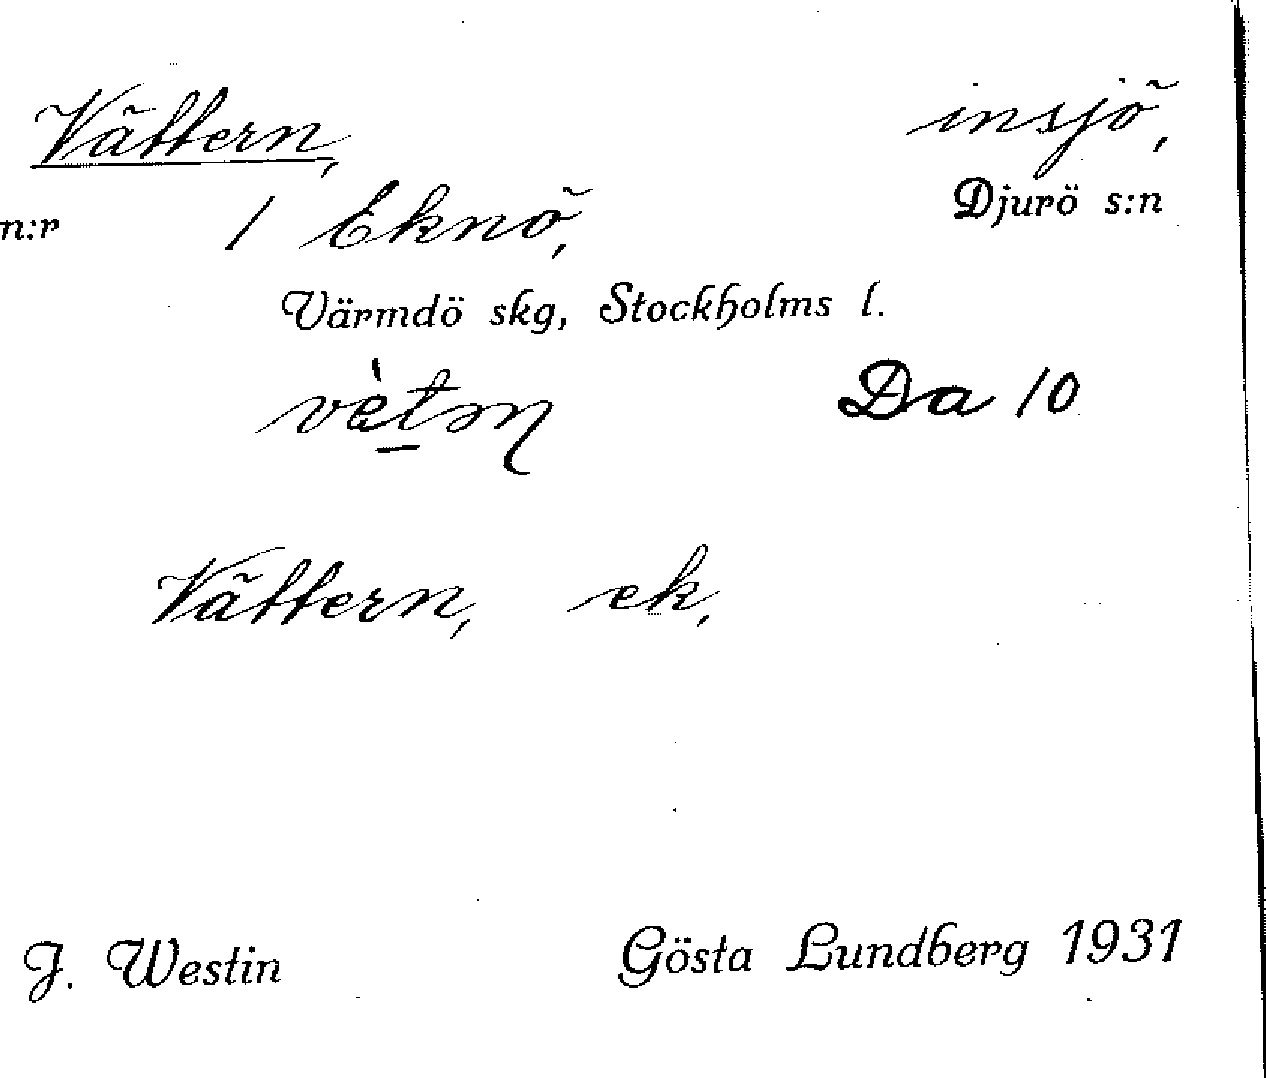 Vättern, insjö,
n:r 1 Eknö, Djurö s:n
Värmdö skg, Stockholms l.
Da 10
Vättern, ek,
J. Westin Gösta Lundberg 1931